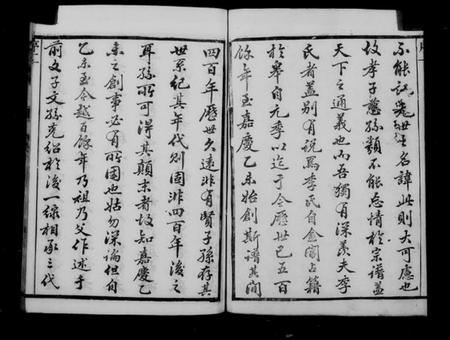 不能記先世之名諱此則大可慮也
故孝子慈孫類不能忘情於宗譜蓋
天下之通義也而吾獨有深羨夫李
氏者蓋別有說焉李氏自金閶占籍
於皋自元季以迄于今歷世已五百
餘年至嘉慶乙未始創斯譜其間
四百年歷世久遠非有賢子孫存其
世系紀其年代則固非四百年後之
耳孫所可得其顛末者故知嘉慶乙
未之創事必有所因也姑勿深論但自
乙未至今越百餘年乃祖乃父作述于
前文子文孫克紹於後一線相承三代